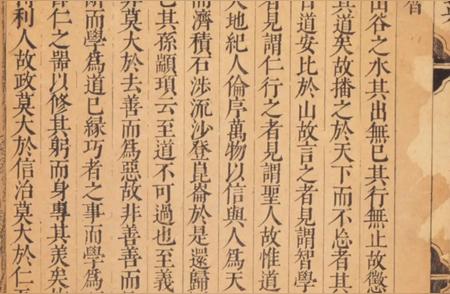 智
山谷之水其出無已其行無止故懲
其道矣故播之於天下而不忘者其
日道安比於山故言之者見謂智學
者見謂仁行之者見謂聖人故惟道
天地紀人倫序萬物以信與人為天
而濟積石涉流沙登崑崙於是還歸
已其孫顓頊云至道不可過也至義
莫大於去善而為惡故非善善而
所而學為道已緣巧者之事而學為
仁之器以修其躬而身專其美矣
利人故政莫大於信治莫大於仁